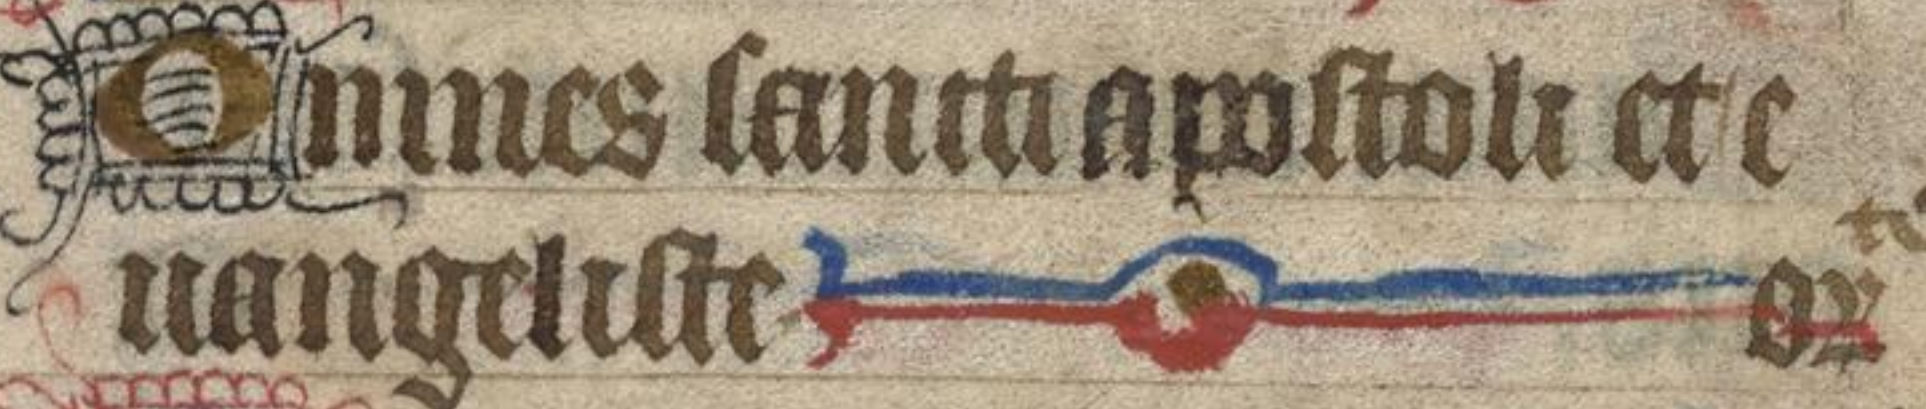 Omnes sancti apostoli et e
uangeliste or